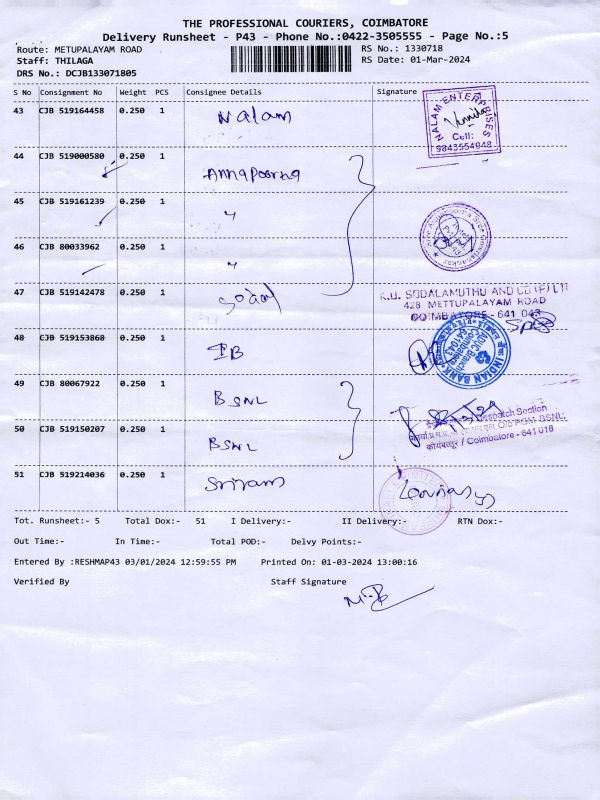 THE PROFESSIONAL COURIERS, COIMBATORE
Delivery Runsheet - P43 - Phone No.:0422-3505555 - Page No.:5
Route: METUPALAYAM ROAD RS No.: 1330718
Staff: THILAGA RS Date: 01-Mar-2024
DRS No.: DCJB133071805
S No Consignment No Weight PCS Consignee Details Signature
43 CJB 519164458 0.250 1 Nalam
NALAM ENTERPRISES
Cell:
9843554948
44 CJB 519000580 0.250 1 Annapoorna
45 CJB 519161239 0.250 1 "
46 CJB 80033962 0.250 1 "
47 CJB 519142478 0.250 1
K.U. SODALAMUTHU AND CO (P) LT
428 METTUPALAYAM ROAD
COIMBATORE - 641 043
48 CJB 519153868 0.250 1 IB
INDIAN BANK
Coimbatore
641043
49 CJB 80067922 0.250 1 BSNL
Despatch Section
50 CJB 519150207 0.250 1 BSNL
O/o PGM, BSNL,
कोयंबत्तूर / Coimbatore - 641 018
51 CJB 519214036 0.250 1 Sriram
Tot. Runsheet:- 5 Total Dox:- 51 I Delivery:- II Delivery:- RTN Dox:-
Out Time:- In Time:- Total POD:- Delvy Points:-
Entered By :RESHMAP43 03/01/2024 12:59:55 PM Printed On: 01-03-2024 13:00:16
Verified By Staff Signature